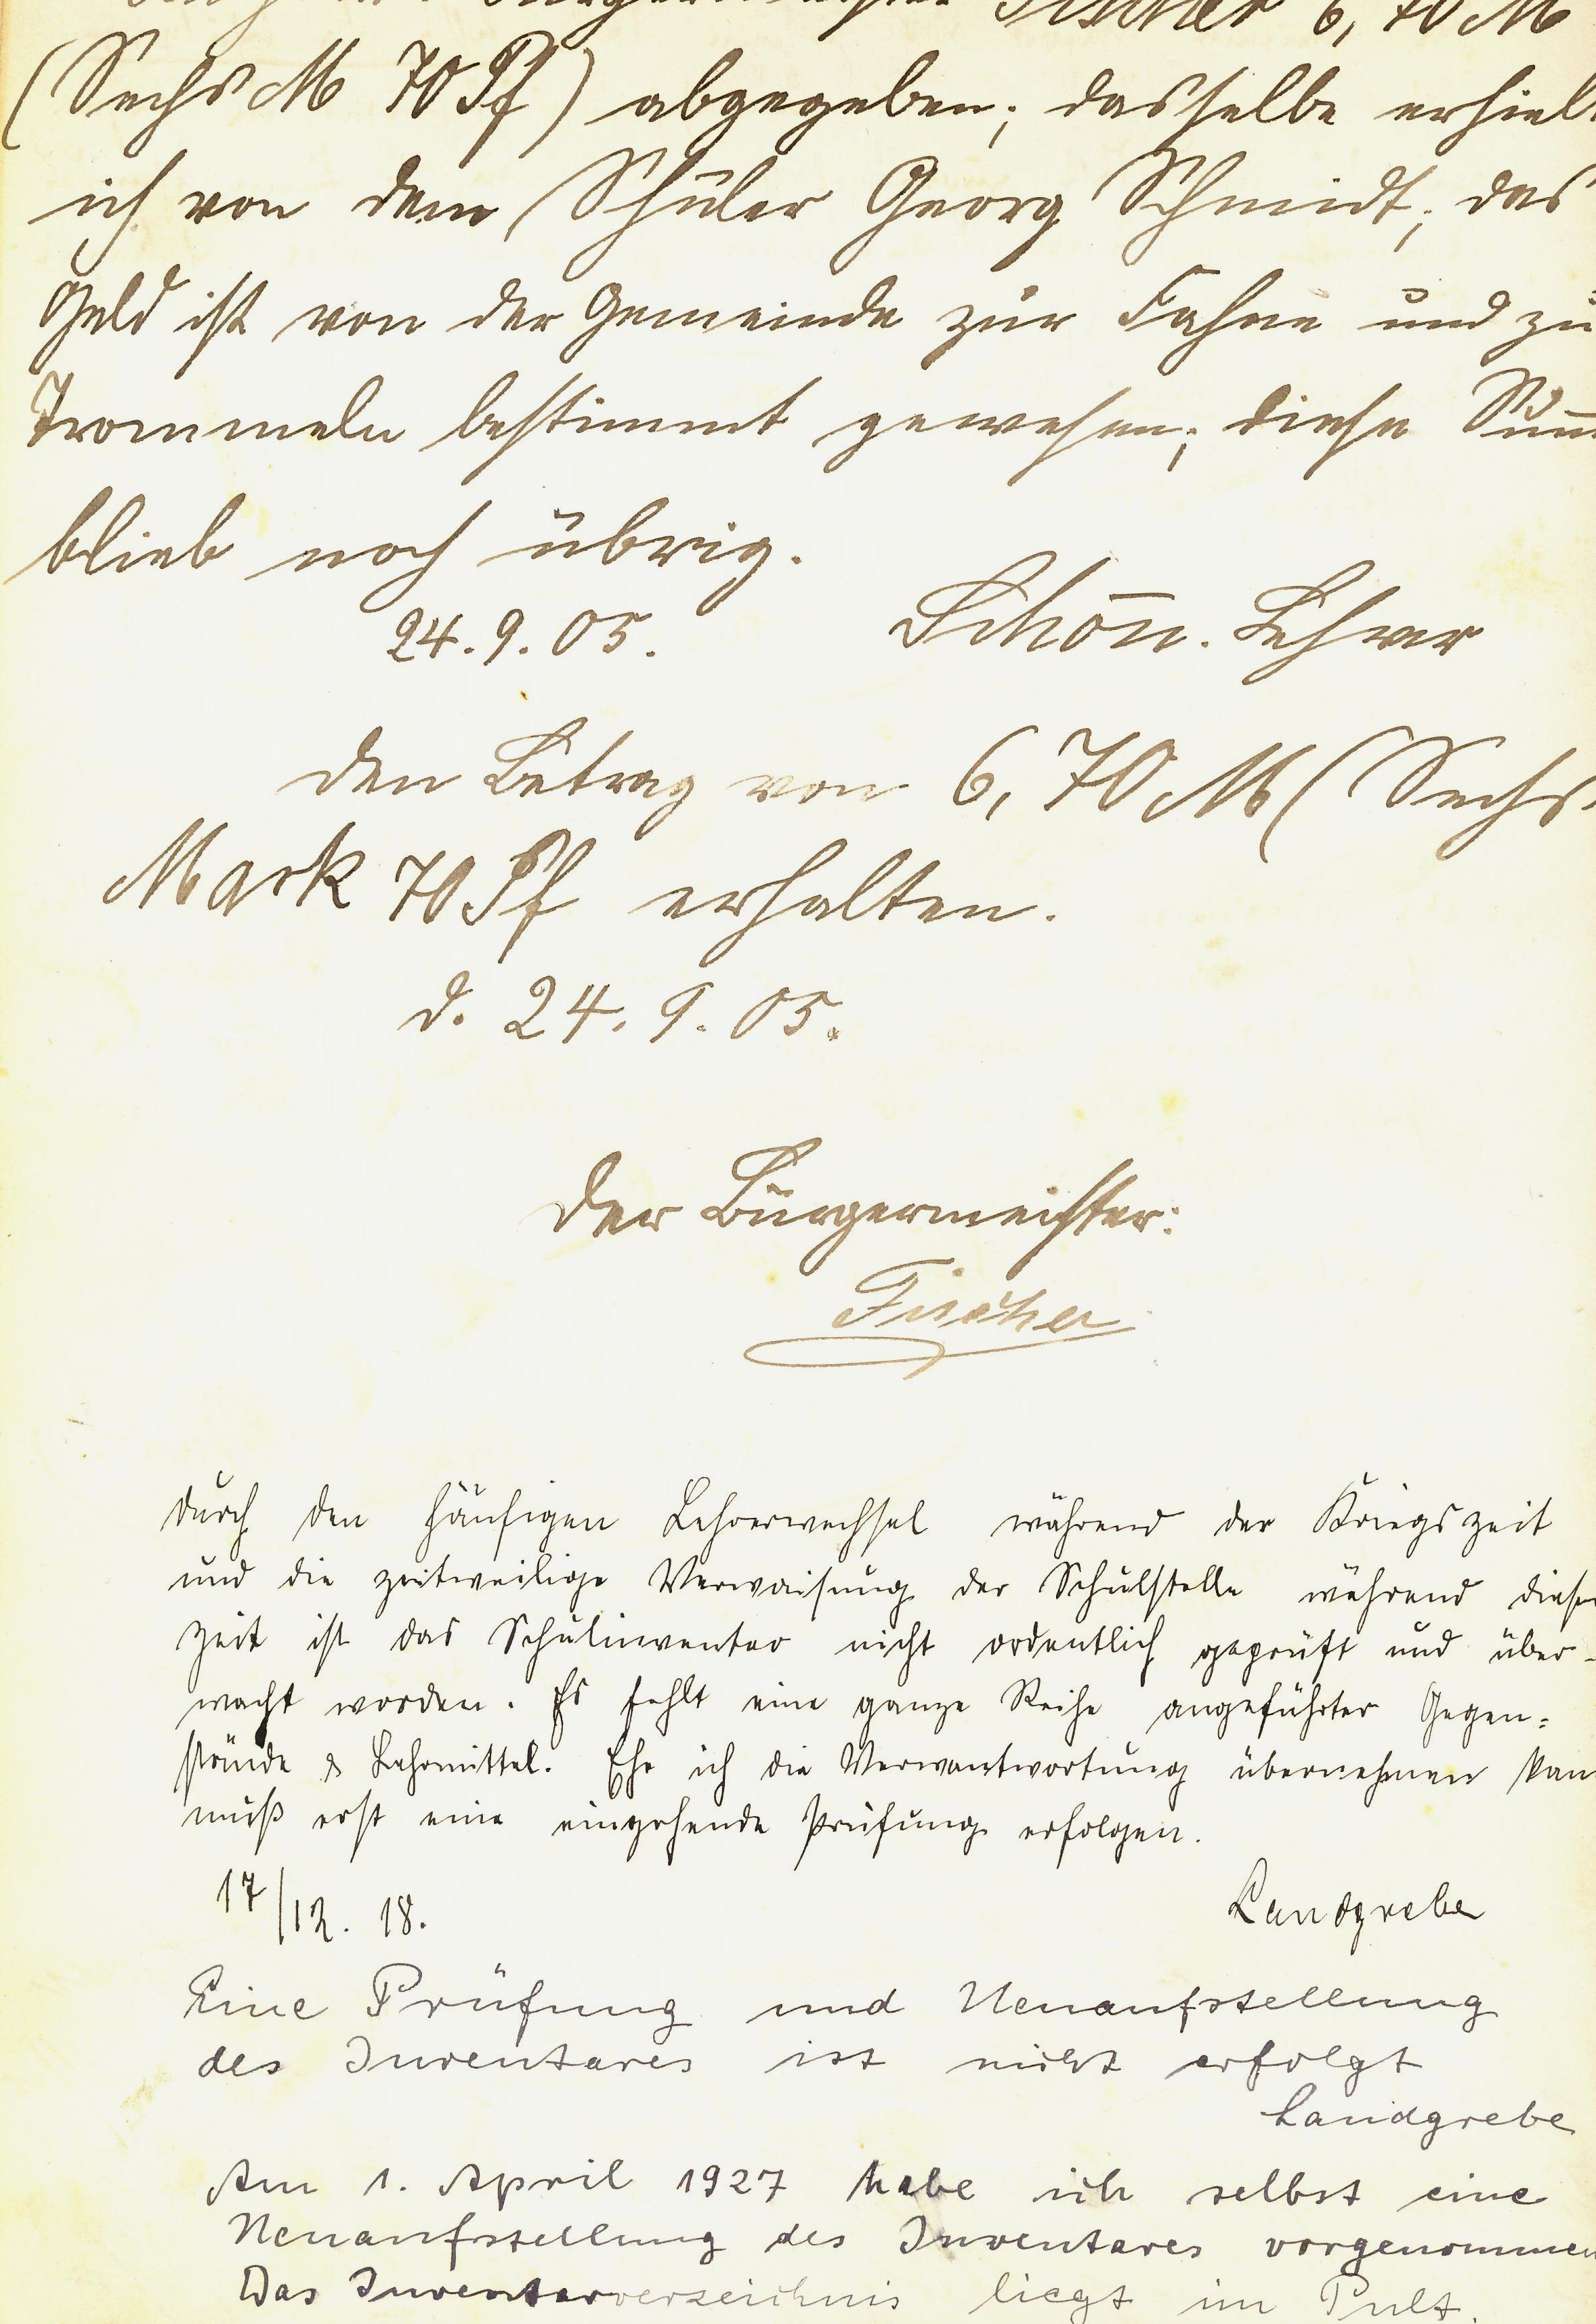 Bürgermeister Fischer 6,70 M
(Sechs M 70 Pf) abgegeben; dasselbe erhielt
ich von dem Schüler Georg Schmidt; das
Geld ist von der Gemeinde zur Fahne und zu
Trommeln bestimmt gewesen; diese Sum
blieb noch übrig.
24. 9. 05. Schön. Lehrer
Den Betrag von 6,70 M (Sechs
Mark 70 Pf erhalten.
d. 24. 9. 05.
Der Bürgermeister:
Fischer
Durch den häufigen Lehrerwechsel während der Kriegszeit
und die zeitweilige Verwaisung der Schulstelle während dieser
Zeit ist das Schulinventar nicht ordentlich geprüft und über-
wacht worden. Es fehlt eine ganze Reihe angeführter Gegen=
stände & Lehrmittel. Ehe ich die Verwantwortung übernehmen kan
muß erst eine eingehende Prüfung erfolgen.
17/12. 18. Landgrebe
Eine Prüfung und Neuaufstellung
des Inventares ist nicht erfolgt
Landgrebe
Am 1. April 1927 habe ich selbst eine
Neuaufstellung des Inventares vorgenommen
Das Inventarverzeichnis liegt im Pult.